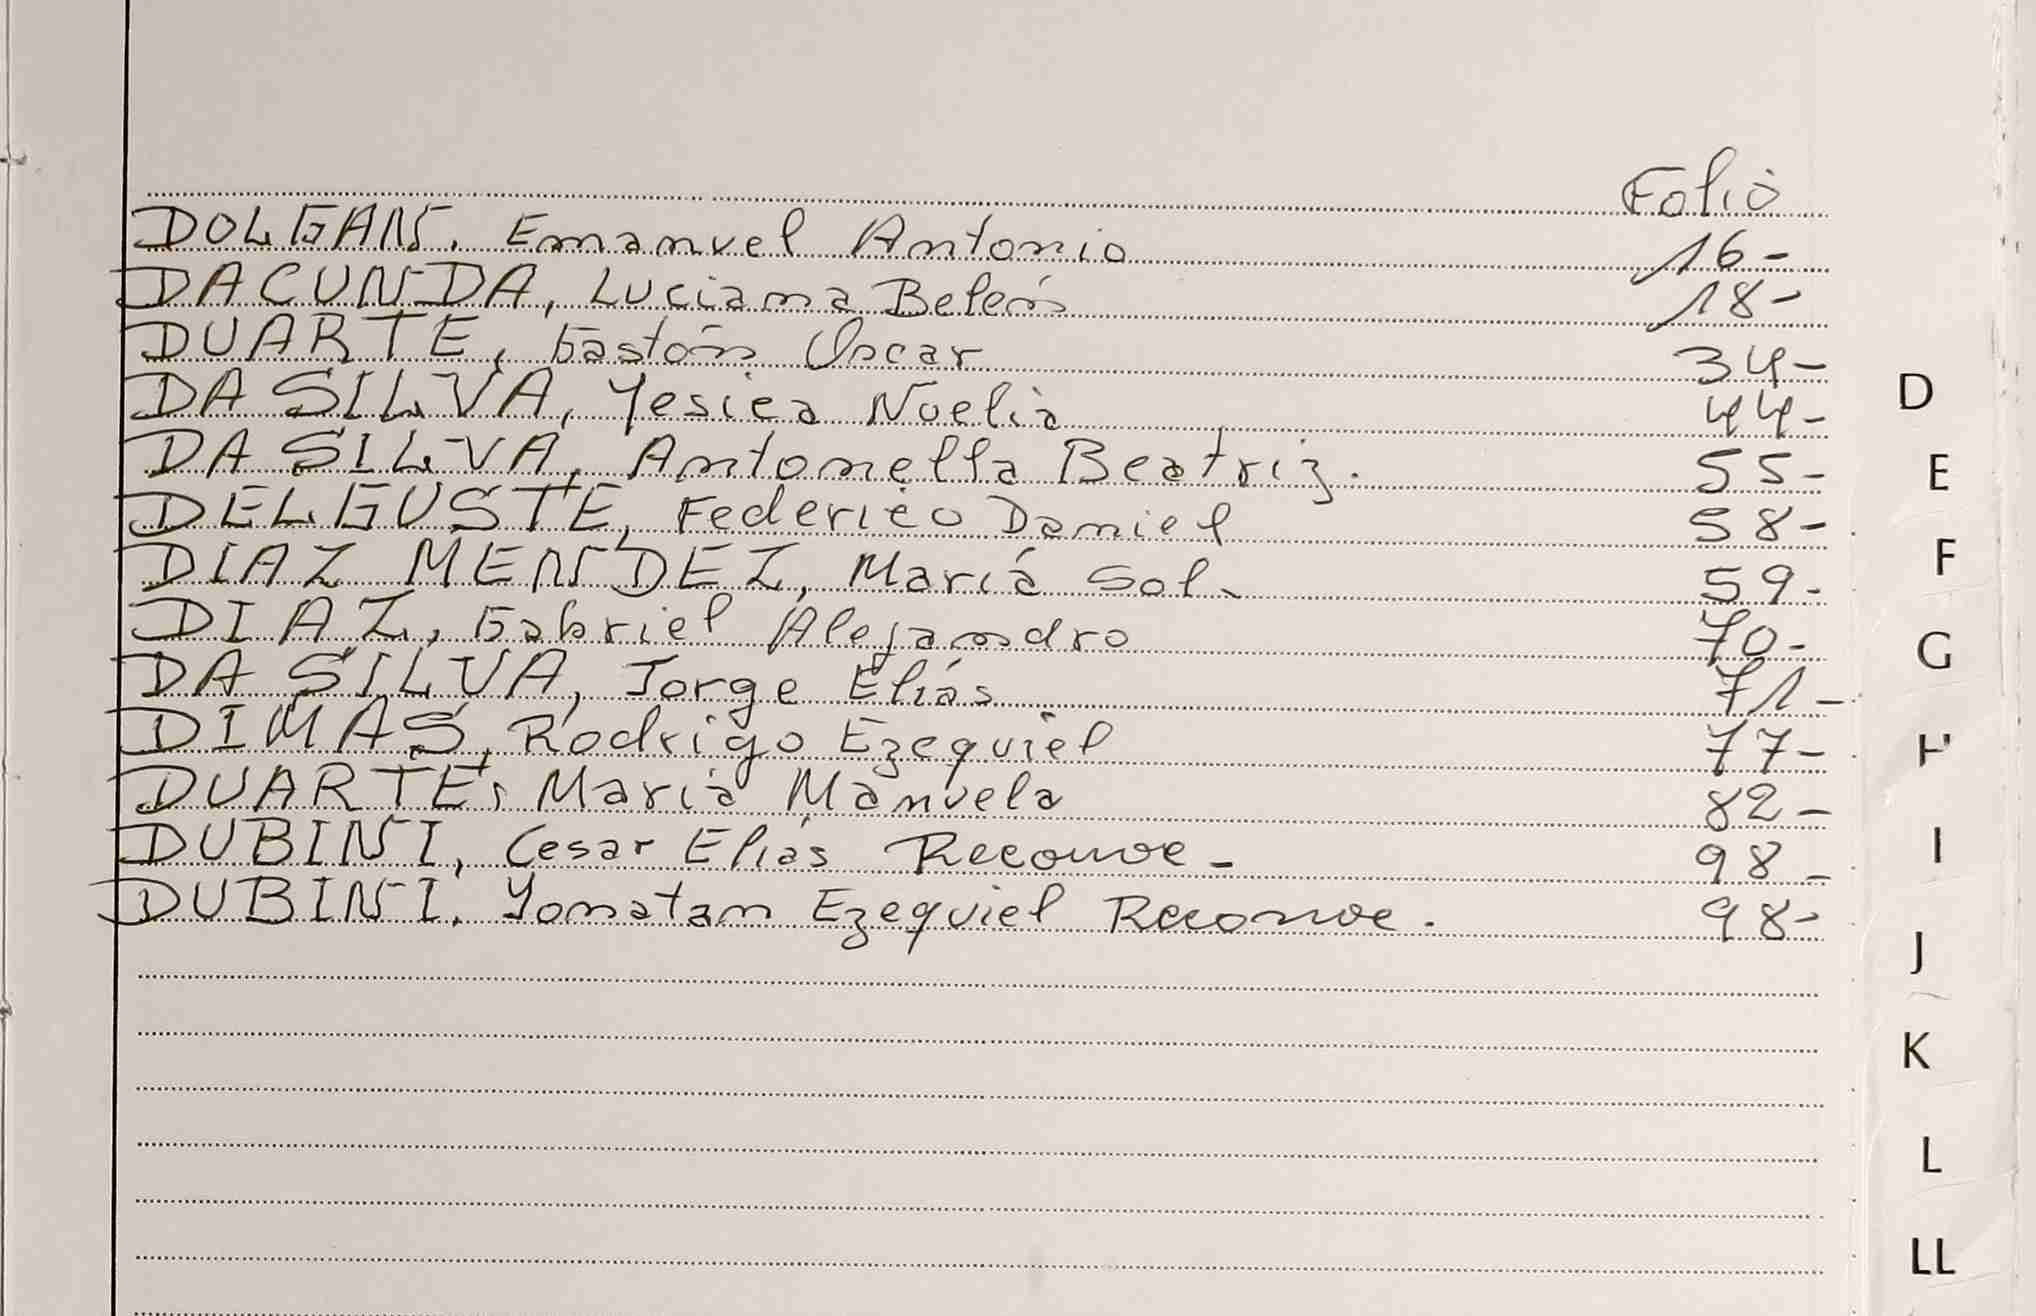 Folio
DOLGAN, Emanuel Antonio 16-
DACUNDA, Luciana Belén 18-
DUARTE, Gastón Oscar 34-
DA SILVA, Yesica Noelia 44-
DA SILVA, Antonella Beatriz. 55-
DELGUSTE, Federico Daniel 58-
DIAZ MENDEZ, María Sol- 59-
DIAZ, Gabriel Alejandro 70-
DA SILVA, Jorge Elías 71-
DIMAS, Rodrigo Ezequiel 77-
DUARTE, María Manuela 82-
DUBINI, Cesar Elías Reconoc- 98-
DUBINI, Yonatan Ezequiel Reconoc. 98-
D
E
F
G
H
I
J
K
L
LL